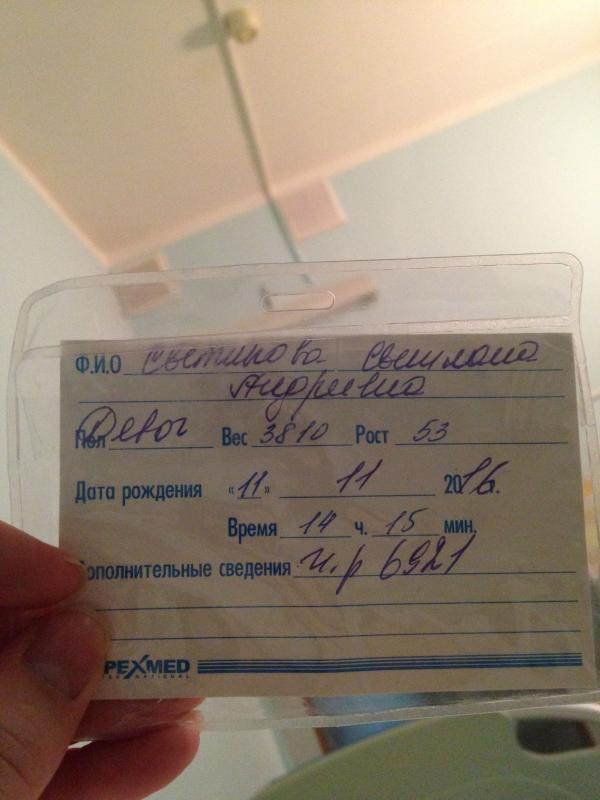 Ф.И.О Светикова Светлана
Андреевна
Пол Девоч Вес 3810 Рост 53
Дата рождения «11» 11 2016.
Время 14 ч. 15 мин.
ополнительные сведения и.р 6921
PEXMED